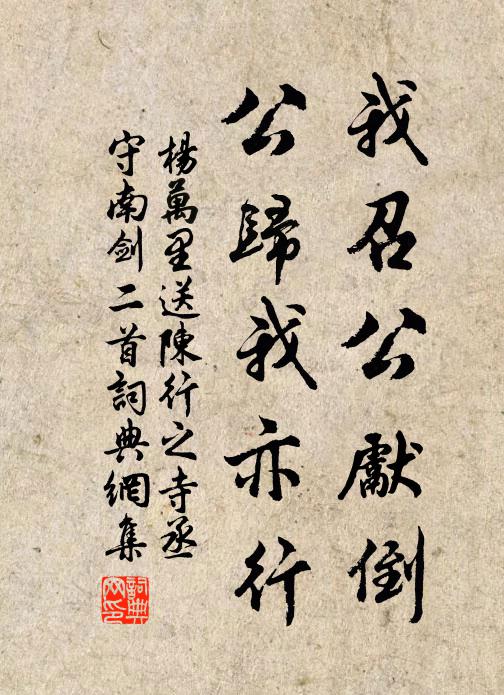 我召公獻倒
公歸我亦行
楊萬里送陳行之寺丞
守南劍二首詞典網集
詞典網印